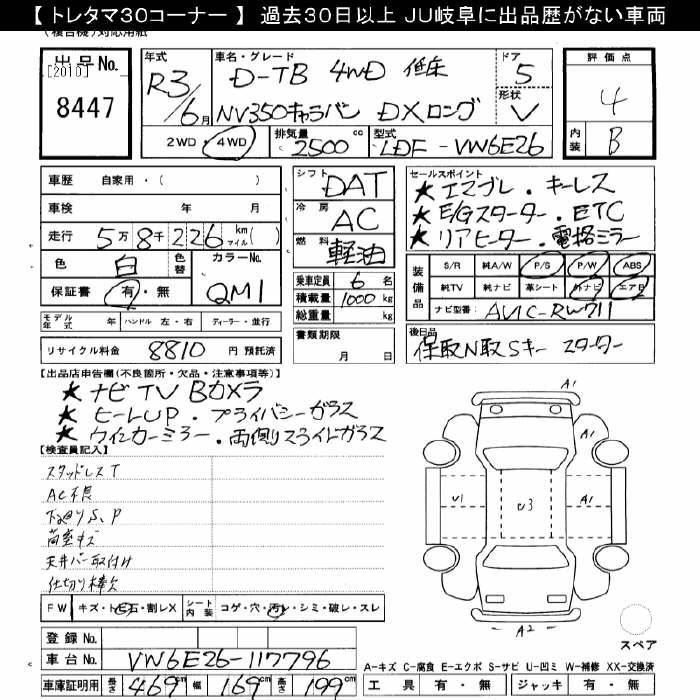 【 トレタマ30コーナー 】 過去30日以上 JU岐阜に出品歴がない車両
(複合機)対応用紙
出品No.
[2010]
8447
年式
R3/6月
車名・グレード
D-TB 4WD 低床
NV350キャラバン DXロング
ドア
5
形状
V
評価点
4
内装
B
2WD・4WD
排気量
2500cc
型式
LDF-VW6E26
車歴 自家用・( )
車検 年 月
走行 5万8千226 km マイル( )
色 白
色替
カラーNo.
QM1
保証書 有・無
シフト
DAT
冷房
AC
燃料
軽油
乗車定員 6名
積載量 1000kg
総重量 kg
セールスポイント
★エマブレ・キーレス
★E/Gスターター・ETC
★リアヒーター・電格ミラー
装備品
S/R 純A/W P/S P/W ABS
純TV 純ナビ 革シート 外ナビ エアB
ナビ型番 AVIC-RW711
モデル年式 年 ハンドル 左・右 ディーラー・並行
リサイクル料金 8810 円 預託済
書類期限
月 日
後日品
保取N取Sキー スターター
【出品店申告欄(不良箇所・欠品・注意事項等)】
★ナビTV Bカメラ
★ヒーレUP・プライバシーガラス
★ウインカーミラー・両側スライドガラス
【検査員記入】
スタッドレスT
AC不良
下廻りS、P
荷室キズ
天井バー取付け
仕切り棒欠
A1
A1
U1
U3
A1
A2
スペア
FW キズ・トビ石・割レX シート内装 コゲ・穴・汚レ・シミ・破レ・スレ
登録No.
車台No. VW6E26-117796
車庫証明用 長さ 469cm 幅 169cm 高さ 199cm
A-キズ C-腐食 E-エクボ S-サビ U-凹ミ W-補修 XX-交換済
工具 有・無 ジャッキ 有・無